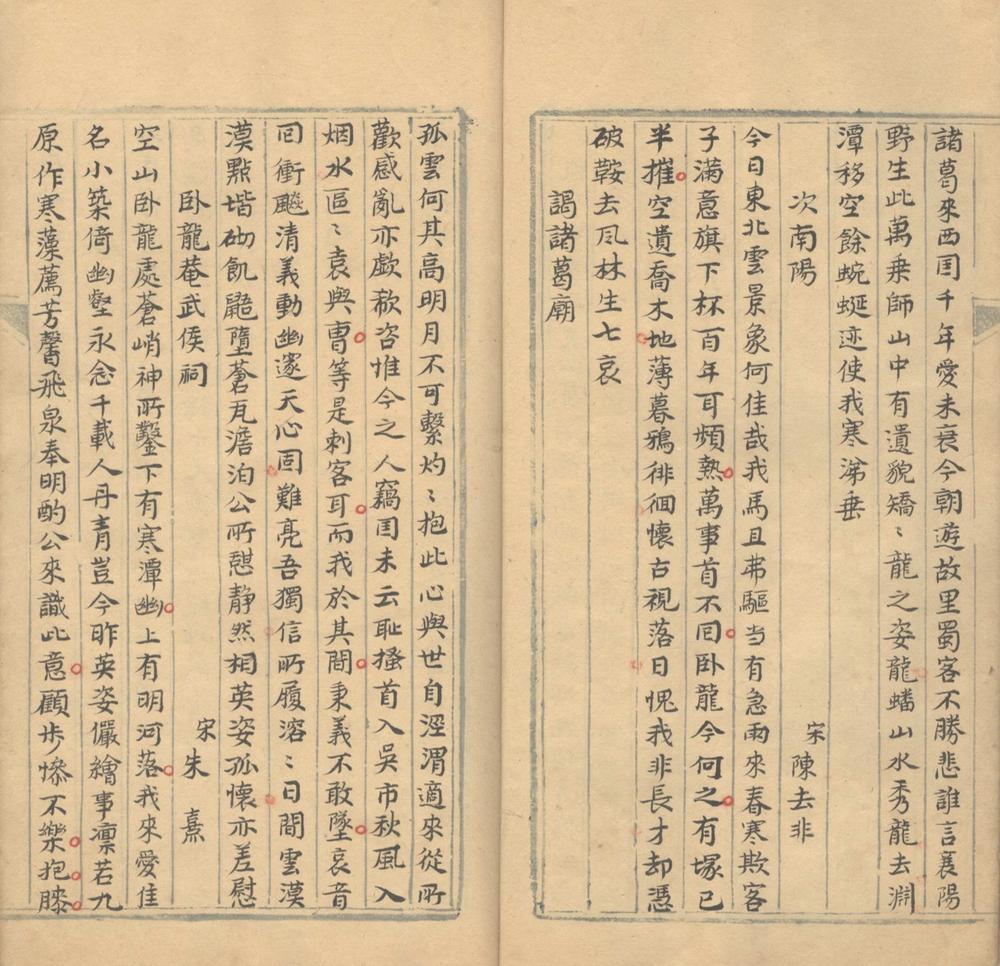 諸葛來西囯千年愛未衰今朝遊故里蜀客不勝悲誰言襄陽
野生此萬乗師山中有遺貌矯〻龍之姿龍蟠山水秀龍去淵
潭移空餘蜿蜒迹使我寒涕垂
次南陽 宋 陳去非
今日東北雲景象何佳哉我馬且弗驅当有急雨來春寒欺客
子滿意旗下杯百年耳頻熱萬事首不囘卧龍今何之有塚已
半摧空遺喬木地薄暮鴉徘徊懷古視落日愧我非長才却憑
破鞍去風林生七哀
謁諸葛廟
孤雲何其高明月不可繫灼〻抱此心與世自涇渭適來從所
歡感亂亦歔欷咨惟今之人竊囯未云耻搔首入吳市秋風入
烟水區〻袁與曹等是刺客耳而我於其間秉義不敢墜哀音
囘衝飈清義動幽邃天心固難亮吾獨信所履溶〻日間雲漠
漠點堦砌飢鼯墮蒼瓦澹泊公所憇靜然相英姿孤懷亦差慰
卧龍菴武侯祠 宋 朱熹
空山卧龍處蒼峭神所鑿下有寒潭幽上有明河落我來愛佳
名小築倚幽壑永念千載人丹青豈今昨英姿儼繪事凜若九
原作寒〻藻薦芳馨飛泉奉明酌公來識此意顧步慘不樂抱膝